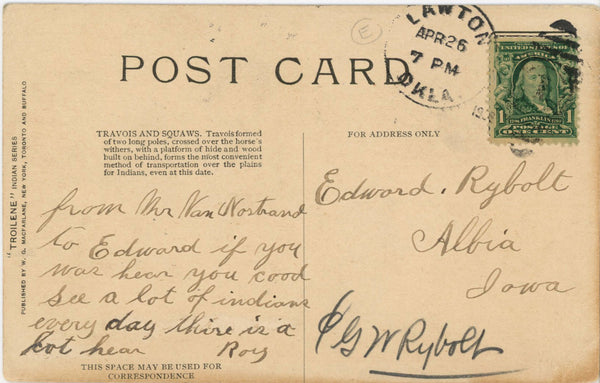 E
LAWTON
APR 26
7 PM
OKLA.
POST CARD
UNITED STATES OF AMERICA
1 FRANKLIN 1
POSTAGE
ONE CENT
TRAVOIS AND SQUAWS. Travois formed
of two long poles, crossed over the horse's
withers, with a platform of hide and wood
built on behind, forms the most convenient
method of transportation over the plains
for Indians, even at this date.
FOR ADDRESS ONLY
"TROILENE" INDIAN SERIES
PUBLISHED BY W. G. MACFARLANE, NEW YORK, TORONTO AND BUFFALO
from Mr Van Nostrand
to Edward if you
was hear you cood
see a lot of indians
every day thire is a
lot hear Roy
Edward. Rybolt
Albia
Iowa
GW Rybolt
THIS SPACE MAY BE USED FOR
CORRESPONDENCE